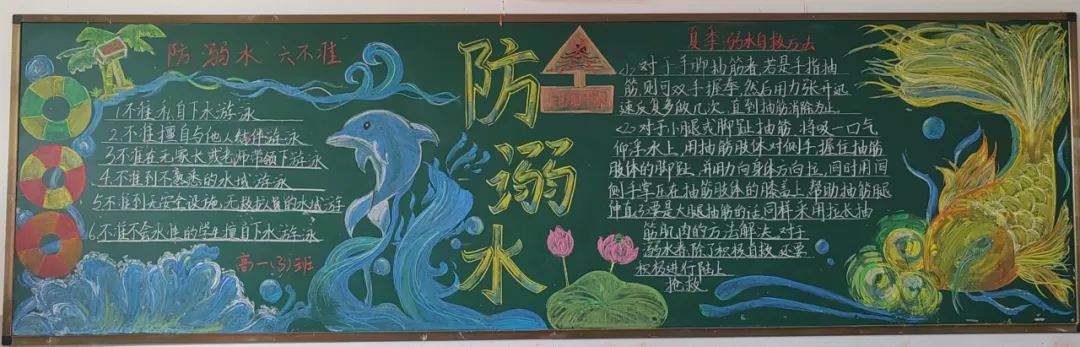 防溺水"六不准"
1.不准私自下水游泳
2.不准擅自与他人结伴游泳
3不准在无家长或老师带领下游泳
4.不准到不熟悉的水域游泳
5不准到无安全设施、无救援人员的水域游
6.不准不会水性的学生擅自下水游泳
高一(3)班
防溺水
夏季溺水自救方法
<1>对于手脚抽筋者,若是手指抽
筋,则可双手握拳,然后用力张开,迅
速反复多做几次,直到抽筋消除为止.
<2>对于小腿或脚趾抽筋,将吸一口气
仰浮水上,用抽筋肢体对侧手握住抽筋
肢体的脚趾,并用力向身体方向拉,同时用同
侧手掌压在抽筋肢体的膝盖上,帮助抽筋腿
伸直3要是大腿抽筋的话,同样采用拉长抽
筋肌肉的方法解决.对于
溺水者,除了积极自救,还要
积极进行陆上
抢救